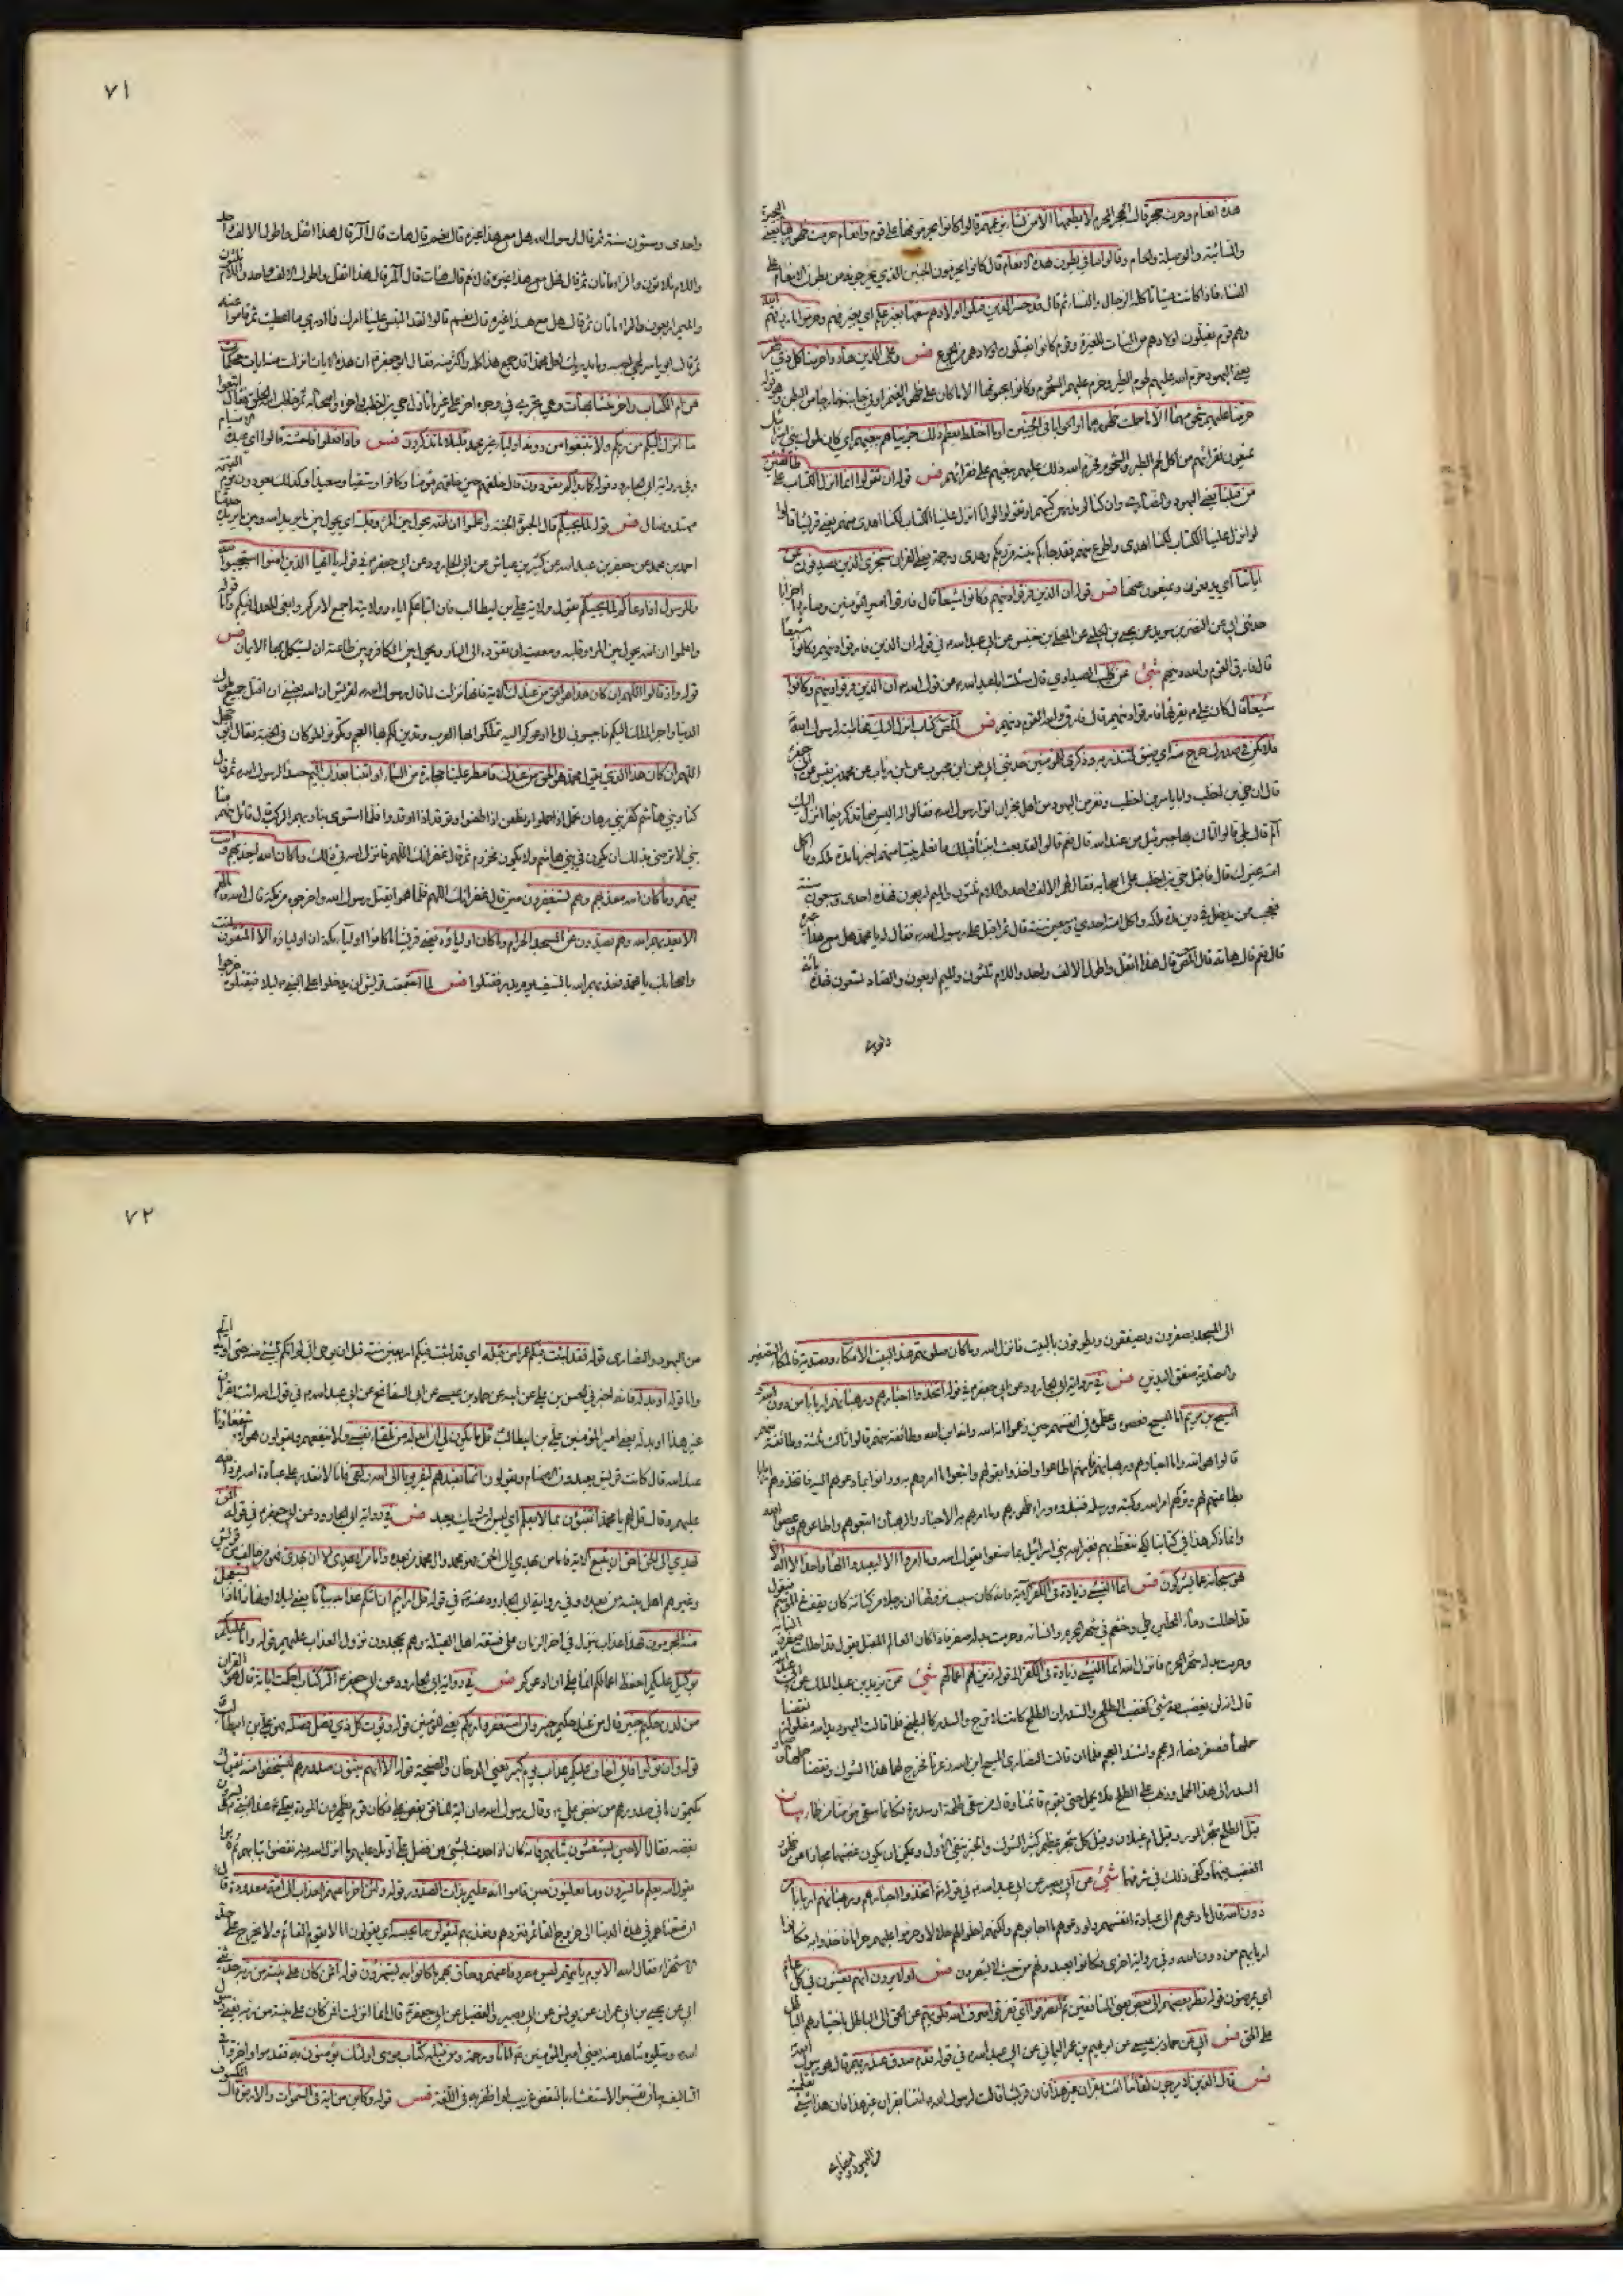 هذه انعام وحرث حجر قال الحجر المحرم لا يطعمها الا من نشاء بزعمهم قالوا كانوا يحرمونها على قوم وانعام حرمت ظهورها يعني البحيرة
والسائبة والوصيلة والحام وقالوا ما في بطون هذه الانعام قال كانوا يحرمون الجنين الذي يخرجونه من بطون الانعام على
النساء فاذا كانت ميتا تأكله الرجال والنساء ثم قال قد خسر الذين قتلوا اولادهم سفها بغير علم اي بغير فهم وحرموا ما رزقهم الله
وهم قوم يقتلون اولادهم من البنات للغيرة وقوم كانوا يقتلون اولادهم من الجوع فس وعلى الذين هادوا حرمنا كل ذي ظفر
يعني اليهود حرم الله عليهم لحوم الطير وحرم عليهم الشحوم وكانوا يحبونها الا ما كان على ظهور الغنم او في جانبه خارجا من البطن وهو قوله
حرمنا عليهم شحومهما الا ما حملت ظهورهما او الحوايا اي في الجنبين او ما اختلط بعظم ذلك جزيناهم ببغيهم اي كان ملوك بني اسرائيل
يمنعون فقراءهم من اكل لحم الطير والشحوم فحرم الله ذلك عليهم ببغيهم على فقرائهم فس قوله ان تقولوا انما انزل الكتاب على طائفتين
من قبلنا يعني اليهود والنصارى وان كنا لم ندرس كتبهم او تقولوا لو انا انزل علينا الكتاب لكنا اهدى منهم يعني قريشا قالوا
لو انزل علينا الكتاب لكنا اهدى واطوع منهم فقد جاءكم بينة من ربكم وهدى ورحمة يعني القران سنجزي الذين يصدفون عن
اياتنا اي يدفعون ويمنعون عنها فس قوله ان الذين فرقوا دينهم وكانوا شيعا قال فارقوا امير المؤمنين وصاروا احزابا
حدثني ابي عن النضر بن سويد عن يحيى الحلبي عن المعلى بن خنيس عن ابي عبد الله ع في قوله ان الذين فارقوا دينهم وكانوا شيعا
قال فارق القوم والله دينهم شئ عن كليب الصيداوي قال سئلت ابا عبد الله ع عن قول الله ان الذين فرقوا دينهم وكانوا
شيعا قال كان علي ع يقرئها فارقوا دينهم قال فارق والله القوم دينهم فس المص كتاب انزل اليك مخاطبة لرسول الله
فلا يكن في صدرك حرج منه اي ضيق لتنذر به وذكرى للمؤمنين حدثني ابي عن ابن محبوب عن ابن رياب عن محمد بن قيس عن ابي جعفر
قال ان حي بن اخطب وابا ياسر بن اخطب ونفر من اليهود من اهل نجران اتوا رسول الله ص فقالوا له اليس فيما تذكر فيما انزل اليك
الم قال بلى قالوا اتاك بها جبرئيل من عند الله قال نعم قالوا لقد بعث انبياء قبلك ما نعلم نبيا منهم اخبرنا مدة ملكه وما اكل
امته غيرك قال فاقبل حي بن اخطب على اصحابه فقال لهم الالف واحد واللام ثلثون والميم اربعون فهذه احدى وسبعون سنة
فعجب ممن يدخل في دين مدة ملكه واكل امته احدى وسبعين سنة قال ثم اقبل على رسول الله فقال له يا محمد هل مع هذا غيره
قال نعم قال هاته قال المص قال هذا اثقل واطول الالف واحد واللام ثلثون والميم اربعون والصاد تسعون فهذه مائة
٧١
واحدى وستون سنة ثم قال لرسول الله ص هل مع هذا غيره قال نعم قال هات قال الر قال هذا اثقل واطول الالف واحد
واللام ثلاثون والراء ماتان ثم قال هل مع هذا غيره قال نعم قال هات قال المر قال هذا اثقل واطول الالف واحد واللام ثلثون
والميم اربعون والراء ماتان ثم قال هل مع هذا غيره قال نعم قالوا لقد التبس علينا امرك فما ندري ما اعطيت ثم قاموا عنه
ثم قال ابو ياسر لحي اخيه وما يدريك لعل محمدا قد جمع هذا كله واكثر منه فقال ابو جعفر ع ان هذه الايات انزلت منه ايات محكمات
هن ام الكتاب واخر متشابهات وهي تجري في وجوه اخر على غير ما تاول حي بن اخطب واخوه واصحابه ثم خاطب الخلق فقال اتبعوا
ما انزل اليكم من ربكم ولا تتبعوا من دونه اولياء غير محمد قليلا ما تذكرون فس واذا فعلوا فاحشة قالوا اي عبدة الاصنام
وفي رواية ابي الجارود قوله كما بداكم تعودون قال خلقهم حين خلقهم مؤمنا وكافرا وشقيا وسعيدا وكذلك يعودون يوم القيمة
مهتد وضال فس قوله لما يحييكم قال الحيوة الجنة واعلموا ان الله يحول بين المرء وقلبه اي يحول بين ما يريد الله وبين ما يريده حدثنا
احمد بن محمد عن جعفر بن عبد الله عن كثير بن عياش عن ابي الجارود عن ابي جعفر ع في قوله يا ايها الذين امنوا استجيبوا لله
وللرسول اذا دعاكم لما يحييكم يقول ولاية علي بن ابيطالب فان اتباعكم اياه وولايته اجمع لامركم وابقى للعدل فيكم واما قوله
واعلموا ان الله يحول بين المرء وقلبه ومعصيته ان تقوده الى النار ويحول بين الكافر وبين طاعته ان يستكمل بها الايمان فس
قوله واذ قالوا اللهم ان كان هذا هو الحق من عندك الاية فانها نزلت لما قال رسول الله ص لقريش ان الله بعثني ان اقتل جميع ملوك
الدنيا واجر الملك اليكم فاجيبوني الى ما ادعوكم اليه تملكوا بها العرب وتدين لكم بها العجم وتكونوا ملوكا في الجنة فقال ابو جهل
اللهم ان كان هذا الذي يقول محمد هو الحق من عندك فامطر علينا حجارة من السماء او ائتنا بعذاب اليم حسدا لرسول الله ص ثم قال
كنا وبني هاشم كفرسي رهان نحمل اذا حملوا ونطعن اذا طعنوا ونوقد اذا اوقدوا فلما استوى بنا وبهم الركب قال قائل منهم منا
نبي لا نرضى بذلك ان يكون في بني هاشم ولا يكون في مخزوم ثم قال غفرانك اللهم فانزل الله في ذلك وما كان الله ليعذبهم وانت
فيهم وما كان الله معذبهم وهم يستغفرون حين قال غفرانك اللهم فلما هموا بقتل رسول الله واخرجوه من مكة قال الله وما لهم
الا يعذبهم الله وهم يصدون عن المسجد الحرام وما كانوا اولياؤه يعني قريشا ما كانوا اولياء مكة ان اولياؤه الا المتقون انت
واصحابك يا محمد فعذبهم الله بالسيف يوم بدر فقتلوا فس لما اجتمعت قريش ان يدخلوا على النبي ص ليلا فيقتلوه خرجوا
الى المسجد يصفرون ويصفقون ويطوفون بالبيت فانزل الله وما كان صلوتهم عند البيت الا مكاء وتصدية فالمكاء التصفير
والتصدية صفق اليدين فس في رواية ابي الجارود عن ابي جعفر ع في قوله اتخذوا احبارهم ورهبانهم اربابا من دون الله
المسيح بن مريم اما المسيح فعصوه وعظموه في انفسهم حين زعموا انه اله وانه ابن الله وطائفة منهم قالوا ثالث ثلثة وطائفة منهم
قالوا هو الله واما احبارهم ورهبانهم فانهم اطاعوا واخذوا بقولهم واتبعوا ما امروهم به ودانوا بما دعوهم اليه فاتخذوهم اربابا
بطاعتهم لهم وتركهم امر الله وكتبه ورسله فنبذوه وراء ظهورهم وما امرهم به الاحبار والرهبان اتبعوهم واطاعوهم وعصوا الله
وانما ذكر هذا في كتابنا لكي نتعظ بهم فعير الله بني اسرائيل بما صنعوا يقول الله وما امروا الا ليعبدوا الها واحدا لا اله الا
هو سبحانه عما يشركون فس انما النسيء زيادة في الكفر الاية فانه كان سبب نزولها ان رجلا من كنانة كان يقف في الموسم فيقول
قد احللت دماء المحلين طي وخثعم في شهر المحرم وانساته وحرمت بدله صفر فاذا كان العام المقبل يقول قد احللت صفر وانساته
وحرمت بدله شهر المحرم فانزل الله انما النسيء زيادة في الكفر الى قوله زين لهم سوء اعمالهم شئ عن يزيد بن عبد الملك عن ابي عبد الله
قال انه لن يغضب لله شئ كغضب الطلح والسدر ان الطلح كانت كالاترج والسدر كالبطيخ فلما قالت اليهود يد الله مغلولة نقصا
حملهما فصغر فصار له عجم واشتد العجم فلما ان قالت النصارى المسيح ابن الله ذعرتا فخرج لهما هذا الشوك ونقصتا حملهما وصار
السدر الى هذا الحمل وذهب حمل الطلح فلا يحمل حتى يقوم قائمنا وقال من سقى طلحة او سدرة فكانما سقى مؤمنا من ظماء بيان
قيل الطلح شجر الموز وقيل ام غيلان وقيل كل شجر عظيم كثير الشوك والخبر ينفي الاول ويمكن ان يكون غضبهما مجازا عن ظهور
الغضب فيهما وكفى ذلك في شرفهما شئ عن ابي بصير عن ابي عبد الله ع في قوله اتخذوا احبارهم ورهبانهم اربابا من
دون الله قال ما دعوهم الى عبادة انفسهم ولو دعوهم ما اجابوهم ولكنهم احلوا لهم حلالا وحرموا عليهم حراما فاخذوا به فكانوا
اربابهم من دون الله وفي رواية اخرى فكانوا يعبدونهم من حيث لا يشعرون فس اولا يرون انهم يفتنون في كل عام
اي يمرضون قوله نظر بعضهم الى بعض يعني المنافقين ثم انصرفوا اي تفرقوا صرف الله قلوبهم عن الحق الى الباطل باختيارهم الباطل
على الحق فس ابي عن حماد بن عيسى عن ابرهيم بن عمر اليماني عن ابي عبد الله ع في قوله قدم صدق عند ربهم قال هو رسول الله
فس قال الذين لا يرجون لقاءنا ائت بقران غير هذا فان قريشا قالت لرسول الله ص ائتنا بقران غير هذا فان هذا شيء تعلمته
من اليهود
٧٢
من اليهود والنصارى قوله فقد لبثت فيكم عمرا من قبله اي قد لبثت فيكم اربعين سنة قبل ان يوحى الي لم اتكم بشيء منه حتى اوحي الي
واما قوله او بدله فانه اخبرني الحسن بن علي عن ابيه عن حماد بن عيسى عن ابي السفاتج عن ابي عبد الله ع في قول الله ائت بقران
غير هذا او بدله يعني امير المؤمنين علي بن ابيطالب قل ما يكون لي ان ابدله من تلقاء نفسي ولا ينفعهم ويقولون هؤلاء شفعاؤنا
عند الله قال كانت قريش يعبدون الاصنام ويقولون انما نعبدهم ليقربونا الى الله زلفى فانا لا نقدر على عبادة الله فرد الله
عليهم وقال قل لهم يا محمد اتنبؤن بما لا يعلم اي ليس له شريك يعبد فس في رواية ابي الجارود عن ابي جعفر ع في قوله افمن
يهدي الى الحق احق ان يتبع الاية فاما من يهدي الى الحق فهو محمد وال محمد من بعده واما من لا يهدي الا ان يهدى فهو من خالف من قريش
وغيرهم اهل بيته من بعده وفي رواية ابي الجارود عنه ع في قوله قل ارايتم ان اتاكم عذابه بياتا يعني ليلا او نهارا ماذا يستعجل
منه المجرمون فهذا عذاب ينزل في اخر الزمان على فسقة اهل القبلة وهم يجحدون نزول العذاب عليهم قوله وما انا عليكم
بوكيل عليكم احفظ اعمالكم انما علي ان ادعوكم فس في رواية ابي الجارود عن ابي جعفر ع الر كتاب احكمت اياته قال هو القران
من لدن حكيم خبير قال من عند حكيم خبير وان استغفروا ربكم يعني المؤمنين قوله ويؤت كل ذي فضل فضله فهو علي بن ابيطالب
قوله وان تولوا فاني اخاف عليكم عذاب يوم كبير يعني الدخان والصيحة قوله الا انهم يثنون صدورهم ليستخفوا منه يقول
يكتمون ما في صدورهم من بغض علي ع وقال رسول الله ص ان اية المنافق بغض علي فكان قوم يظهرون المودة لعلي ع عند النبي ص ويسرون
بغضه فقال الا حين يستغشون ثيابهم فانه كان اذا حدث بشيء من فضل علي او تلا عليهم ما انزل الله فيه نفضوا ثيابهم ثم قاموا
يقول الله يعلم ما يسرون وما يعلنون حين قاموا انه عليم بذات الصدور قوله ولئن اخرنا عنهم العذاب الى امة معدودة قال
ان متعناهم في هذه الدنيا الى خروج القائم فنردهم ونعذبهم ليقولن ما يحبسه اي يقولون اما لا يقوم القائم ولا يخرج على حد
الاستهزاء فقال الله الا يوم ياتيهم ليس مصروفا عنهم وحاق بهم ما كانوا به يستهزؤن قوله افمن كان على بينة من ربه حدثني
ابي عن يحيى بن ابي عمران عن يونس عن ابي بصير والفضيل عن ابي جعفر ع قال انما انزلت افمن كان على بينة من ربه يعني رسول
الله ويتلوه شاهد منه يعني امير المؤمنين ع اماما ورحمة ومن قبله كتاب موسى اولئك يؤمنون به فقدموا واخروا في
التاليف بيان تفسير الاستغشاء بالنفض غريب لم اظفر به في اللغة فس قوله وكاين من اية في السموات والارض قال الكسوف